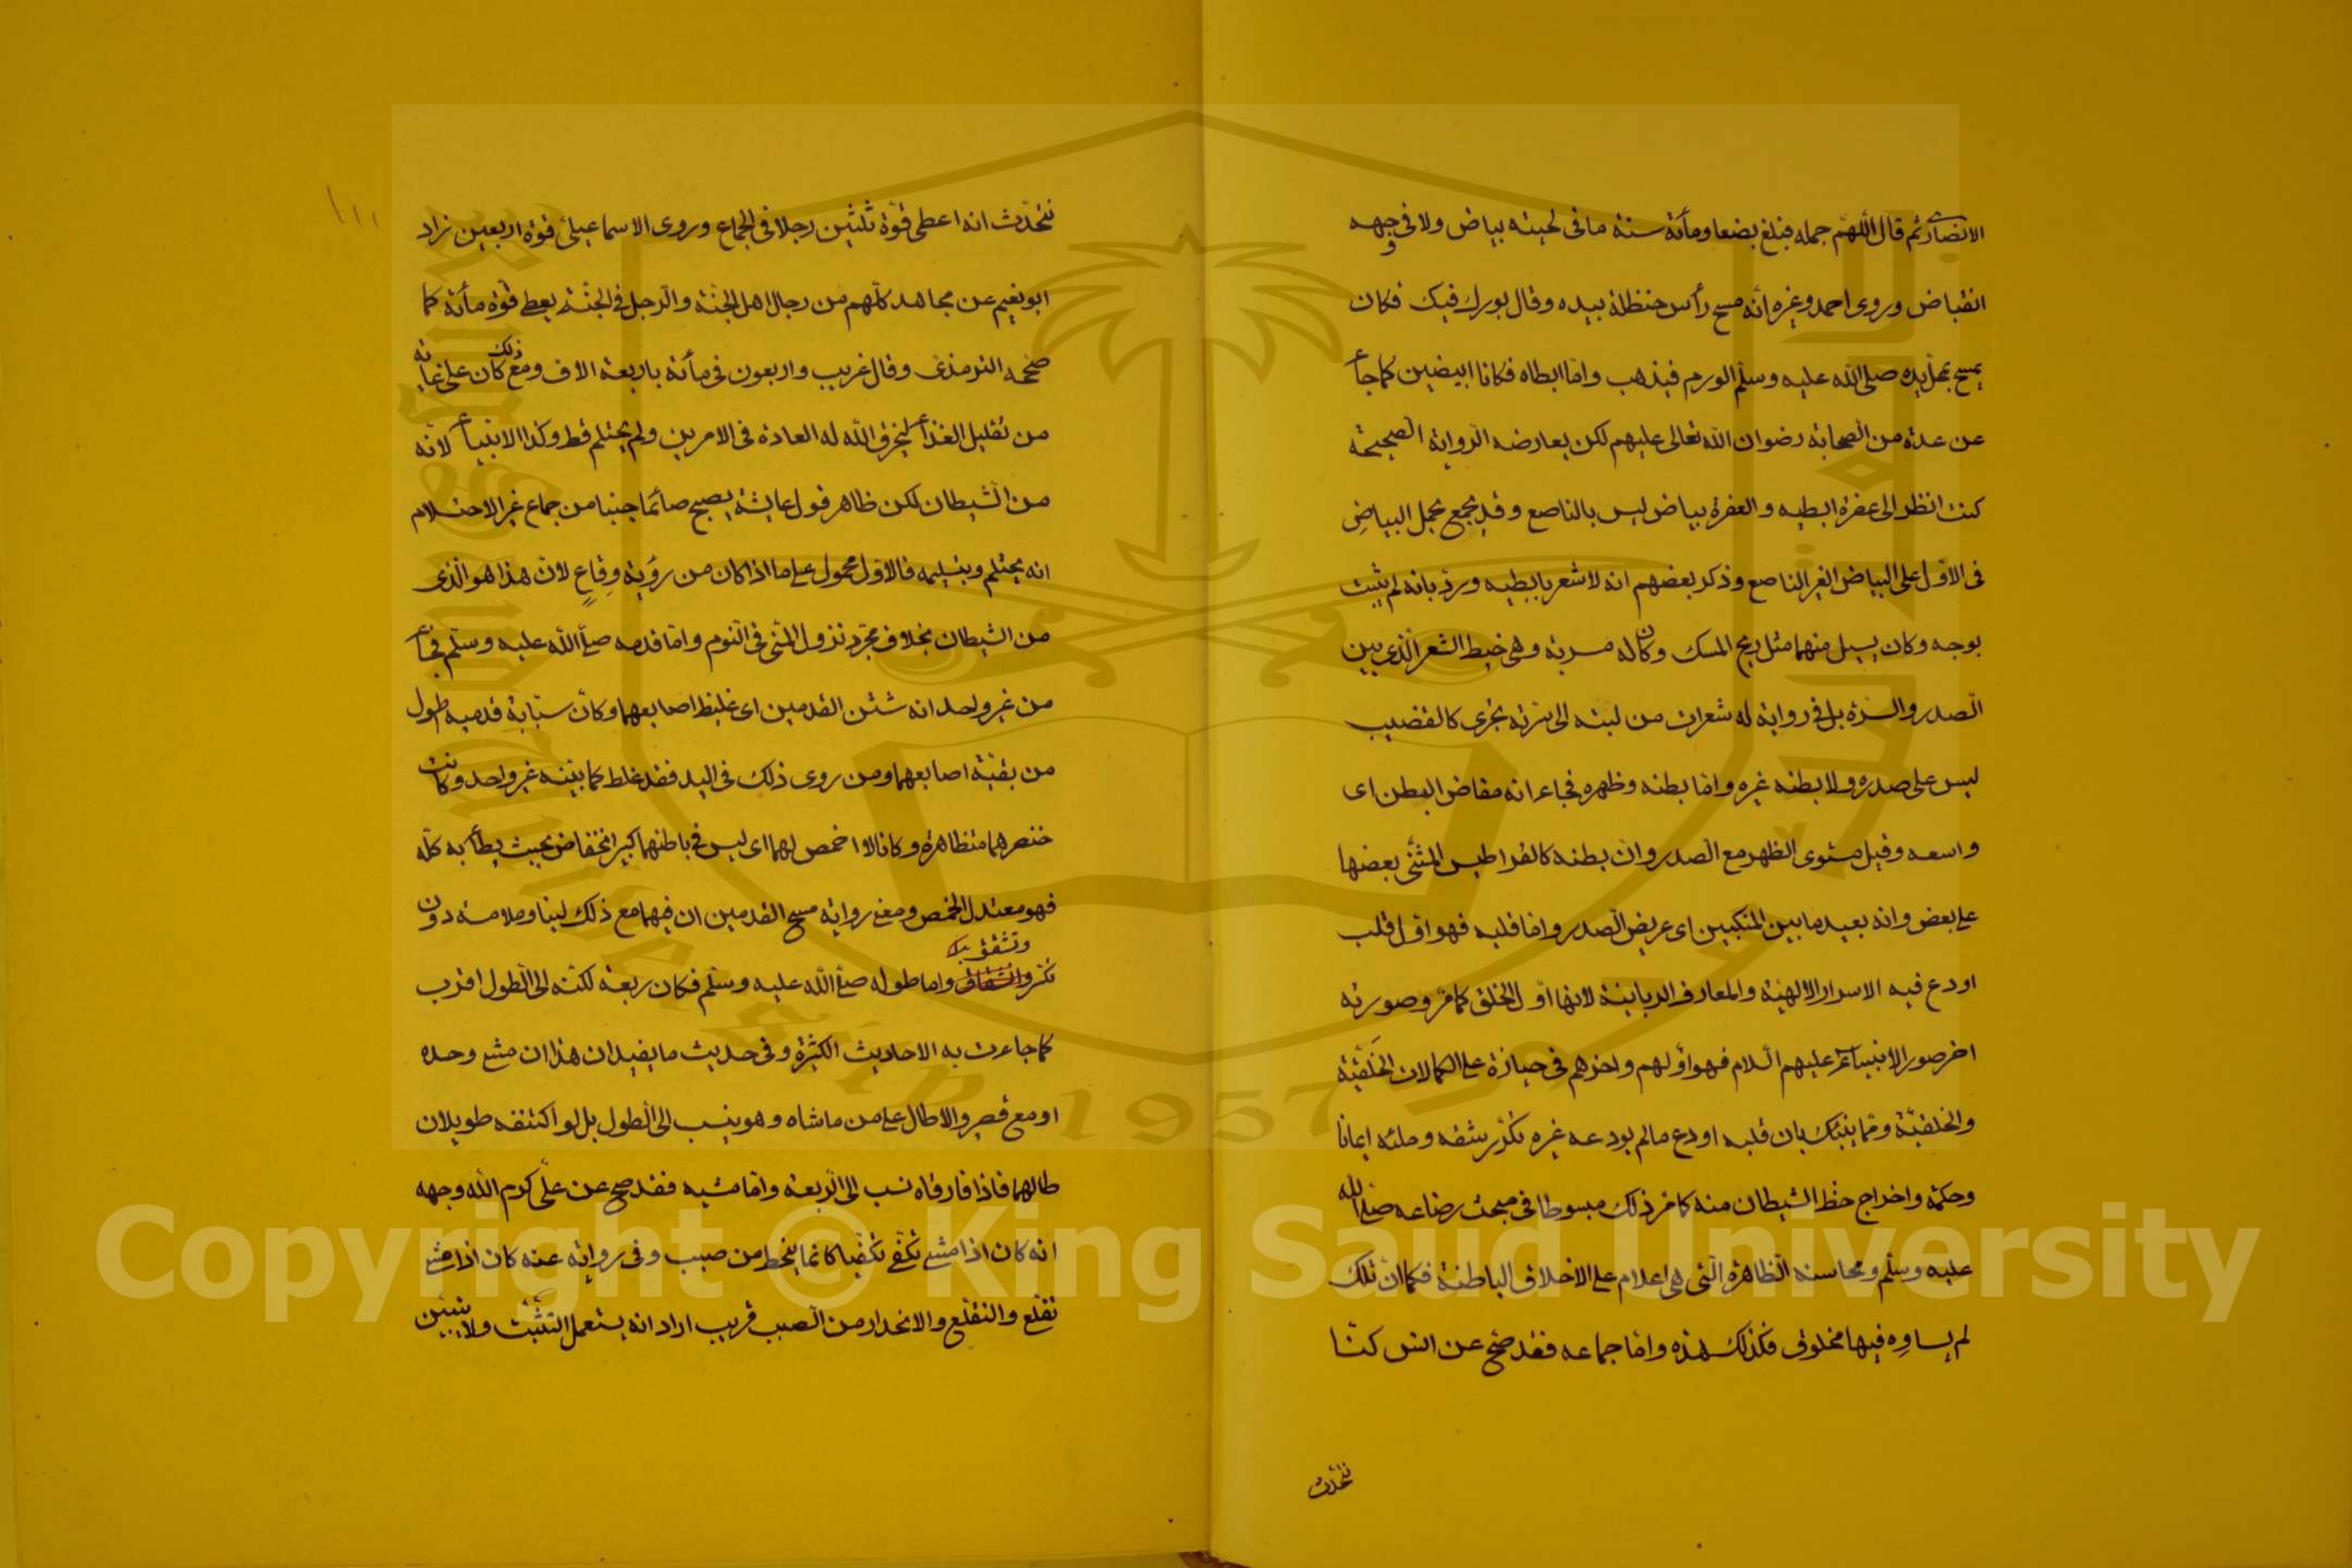 الانصاري ثم قال اللهم جمله فبلغ بضعا ومأية سنة ما في لحيته بياض ولا في وجهه
انقباض وروى احمد وغيره انه مسح رأس حنظلة بيده وقال بورك فيك فكان
يمسح بمحل يده صلى الله عليه وسلم الورم فيذهب واما ابطاه فكانا ابيضين كما جأ
عن عدة من الصحابة رضوان الله تعالى عليهم لكن يعارضه الرواية الصحيحة
كنت انظر الى عفرة ابطيه والعفرة بياض ليس بالناصع وقد يجمع بحمل البياض
في الاول على البياض الغير الناصع وذكر بعضهم انه لا شعر بابطيه ورد بانه لم يثبت
بوجه وكان يسيل منهما مثل ريح المسك وكان له مسربة وهي خيط الشعر الذي بين
الصدر والسرة بل في رواية له شعرات من لبته الى سرته تجرى كالقضيب
ليس على صدره ولا بطنه غيره واما بطنه وظهره فجاء انه مفاض البطن اى
واسعه وقيل مستوى الظهر مع الصدر وان بطنه كالقراطيس المثنى بعضها
على بعض وانه بعيد ما بين المنكبين اى عريض الصدر واما قلبه فهو اول قلب
اودع فيه الاسرار الالهية والمعارف الربانية لانها اول الخلق كما مر وصورته
اخر صور الانبياء عليهم السلام فهو اولهم واخرهم في حيازة على الكمالات الخلقية
والخلقية ومما ينبئك بان قلبه اودع ما لم يودعه غيره تكرر شقه وملئه ايمانا
وحكمة واخراج حظ الشيطان منه كما مر ذلك مبسوطا في مبحث رضاعه صلى الله
عليه وسلم ومحاسنه الظاهرة التى هى اعلام على الاخلاق الباطنة فكما ان تلك
لم يساوه فيها مخلوق فكذلك هذه واما جماعه فقد صح عن انس كنا
نتحدث
نتحدث انه اعطى قوة ثلثين رجلا في الجماع وروى الاسماعيلى قوة اربعين زاد
ابو نعيم عن مجاهد كلهم من رجال اهل الجنة والرجل في الجنة يعطى قوة مأية كما
صححه الترمذى وقال غريب واربعون في مأية باربعة الاف ومع ذلك كان على غاية
من تقليل الغذأ ليخرق الله له العادة في الامرين ولم يحتلم قط وكذا الانبيأ لانه
من الشيطان لكن ظاهر قول عايشة يصبح صائما جنبا من جماع غير الاحتلام
انه يحتلم وبتسليمه فالاول محمول على ما اذا كان من رؤية وقاع لان هذا هو الذى
من الشيطان بخلاف مجرد نزول المنى في النوم واما قدمه صلى الله عليه وسلم فجأ
من غير واحد انه شثن القدمين اى غليظ اصابعهما وكان سبابة قدميه اطول
من بقية اصابعهما ومن روى ذلك في اليد فقد غلط كما بينه غير واحد وكانت
خنصرهما متظاهرة وكانا لا اخمص لهما اى ليس في باطنهما كبير انخفاض بحيث يطأ به كله
فهو معتدل الخمص ومعنى رواية مسح القدمين ان فيهما مع ذلك لينا وملامسة دون
تكسر وتشقق واما طوله صلى الله عليه وسلم فكان ربعة لكنه الى الطول اقرب
كما جاءت به الاحاديث الكثيرة وفي حديث ما يفيد ان هذا ان مشى وحده
او مع قصير والا طال على من ماشاه وهو ينسب الى الطول بل لو اكتنفه طويلان
طالهما فاذا فارقاه نسب الى الربعة واما مشيه فقد صح عن على كرم الله وجهه
انه كان اذا مشى تكفى تكفيا كانما ينحط من صبب وفي رواية عنه كان اذا مشى
تقلع والتقلع والانحدار من الصبب قريب اراد انه يستعمل التثبت ولا يتبين
١١١
King Saud University
1957
Copyright © King Saud University